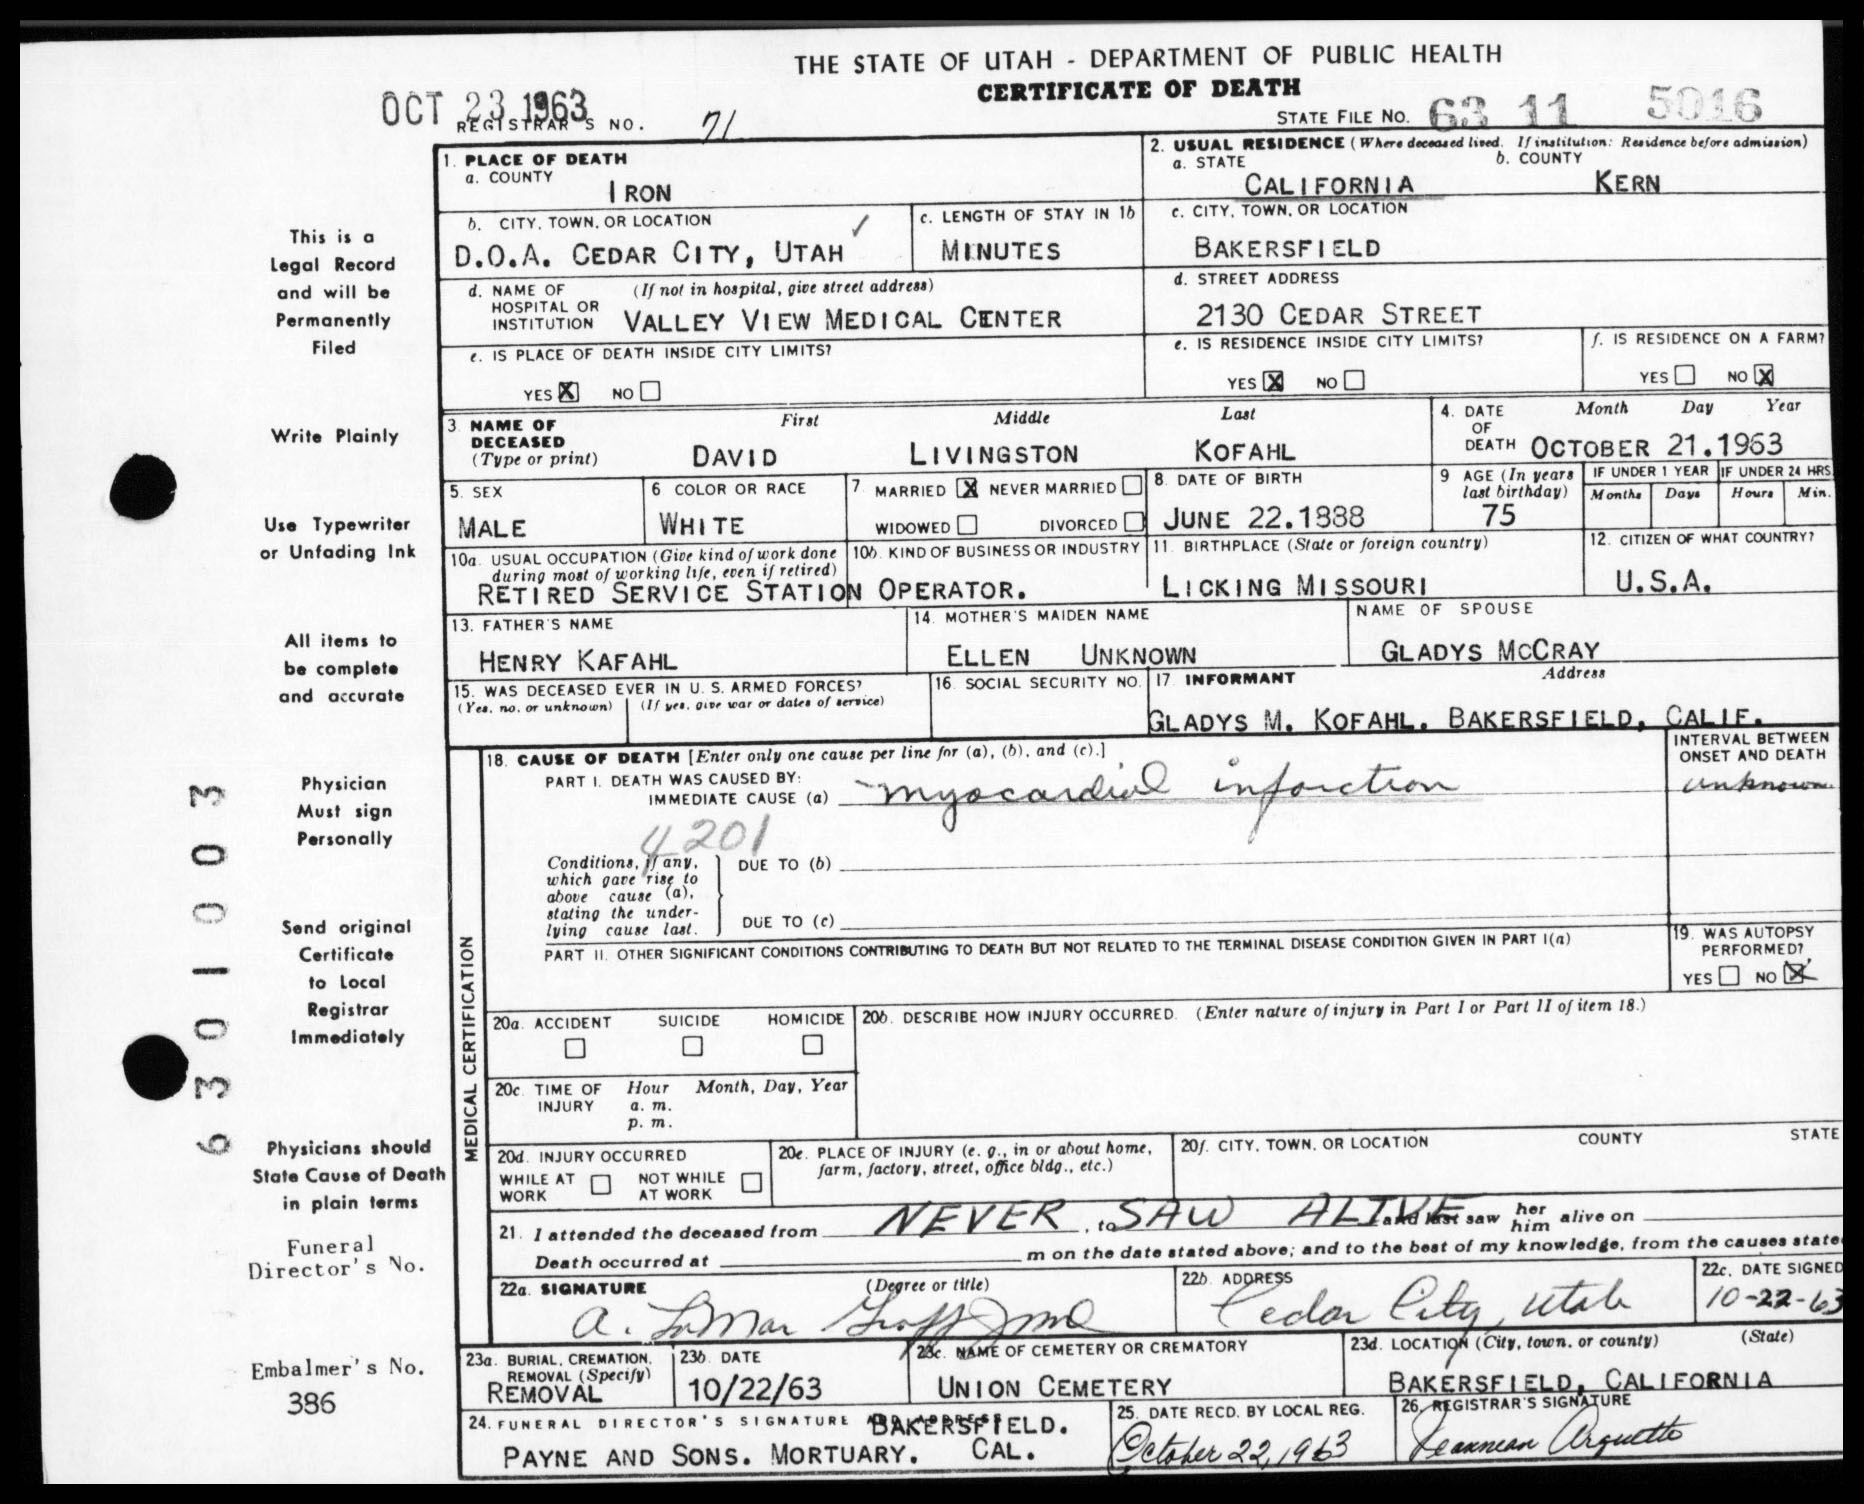 THE STATE OF UTAH - DEPARTMENT OF PUBLIC HEALTH
CERTIFICATE OF DEATH
OCT 23 1963
REGISTRAR'S NO. 71
STATE FILE NO. 63 11 5016
1. PLACE OF DEATH
a. COUNTY
IRON
2. USUAL RESIDENCE (Where deceased lived. If institution: Residence before admission)
a. STATE b. COUNTY
CALIFORNIA KERN
b. CITY, TOWN, OR LOCATION
D.O.A. CEDAR CITY, UTAH ✓
c. LENGTH OF STAY IN 1b
MINUTES
c. CITY, TOWN, OR LOCATION
BAKERSFIELD
d. NAME OF (If not in hospital, give street address)
HOSPITAL OR
INSTITUTION VALLEY VIEW MEDICAL CENTER
d. STREET ADDRESS
2130 CEDAR STREET
e. IS PLACE OF DEATH INSIDE CITY LIMITS?
YES X NO
e. IS RESIDENCE INSIDE CITY LIMITS?
YES X NO
f. IS RESIDENCE ON A FARM?
YES NO X
3. NAME OF First Middle Last
DECEASED
(Type or print) DAVID LIVINGSTON KOFAHL
4. DATE Month Day Year
OF
DEATH OCTOBER 21.1963
5. SEX
MALE
6 COLOR OR RACE
WHITE
7. MARRIED X NEVER MARRIED
WIDOWED DIVORCED
8. DATE OF BIRTH
JUNE 22.1888
9 AGE (In years
last birthday)
75
IF UNDER 1 YEAR IF UNDER 24 HRS
Months Days Hours Min.
10a. USUAL OCCUPATION (Give kind of work done
during most of working life, even if retired)
10b. KIND OF BUSINESS OR INDUSTRY
RETIRED SERVICE STATION OPERATOR.
11. BIRTHPLACE (State or foreign country)
LICKING MISSOURI
12. CITIZEN OF WHAT COUNTRY?
U.S.A.
13. FATHER'S NAME
HENRY KAFAHL
14. MOTHER'S MAIDEN NAME
ELLEN UNKNOWN
NAME OF SPOUSE
GLADYS MCCRAY
15. WAS DECEASED EVER IN U. S. ARMED FORCES?
(Yes, no, or unknown) (If yes, give war or dates of service)
16. SOCIAL SECURITY NO.
17. INFORMANT Address
GLADYS M. KOFAHL. BAKERSFIELD, CALIF.
MEDICAL CERTIFICATION
18. CAUSE OF DEATH [Enter only one cause per line for (a), (b), and (c).]
INTERVAL BETWEEN
ONSET AND DEATH
PART I. DEATH WAS CAUSED BY:
IMMEDIATE CAUSE (a) myocardial infarction unknown
4201
Conditions, if any,
which gave rise to
above cause (a),
stating the under-
lying cause last.
DUE TO (b)
DUE TO (c)
PART II. OTHER SIGNIFICANT CONDITIONS CONTRIBUTING TO DEATH BUT NOT RELATED TO THE TERMINAL DISEASE CONDITION GIVEN IN PART I(a)
19. WAS AUTOPSY
PERFORMED?
YES NO X
20a. ACCIDENT SUICIDE HOMICIDE
20b. DESCRIBE HOW INJURY OCCURRED. (Enter nature of injury in Part I or Part II of item 18.)
20c. TIME OF Hour Month, Day, Year
INJURY a. m.
p. m.
20d. INJURY OCCURRED
WHILE AT NOT WHILE
WORK AT WORK
20e. PLACE OF INJURY (e. g., in or about home,
farm, factory, street, office bldg., etc.)
20f. CITY, TOWN, OR LOCATION COUNTY STATE
21. I attended the deceased from NEVER , to SAW ALIVE and last saw her him alive on
Death occurred at m on the date stated above; and to the best of my knowledge, from the causes state
22a. SIGNATURE (Degree or title)
A. LaMar Graff J md
22b. ADDRESS
Cedar City, Utah
22c. DATE SIGNED
10-22-63
23a. BURIAL, CREMATION,
REMOVAL (Specify)
REMOVAL
23b. DATE
10/22/63
23c. NAME OF CEMETERY OR CREMATORY
UNION CEMETERY
23d. LOCATION (City, town, or county) (State)
BAKERSFIELD, CALIFORNIA
24. FUNERAL DIRECTOR'S SIGNATURE AND ADDRESS
BAKERSFIELD.
PAYNE AND SONS. MORTUARY. CAL.
25. DATE RECD. BY LOCAL REG.
October 22, 1963
26. REGISTRAR'S SIGNATURE
Jeannean Arquette
This is a
Legal Record
and will be
Permanently
Filed
Write Plainly
Use Typewriter
or Unfading Ink
All items to
be complete
and accurate
Physician
Must sign
Personally
Send original
Certificate
to Local
Registrar
Immediately
Physicians should
State Cause of Death
in plain terms
Funeral
Director's No.
Embalmer's No.
386
6301003